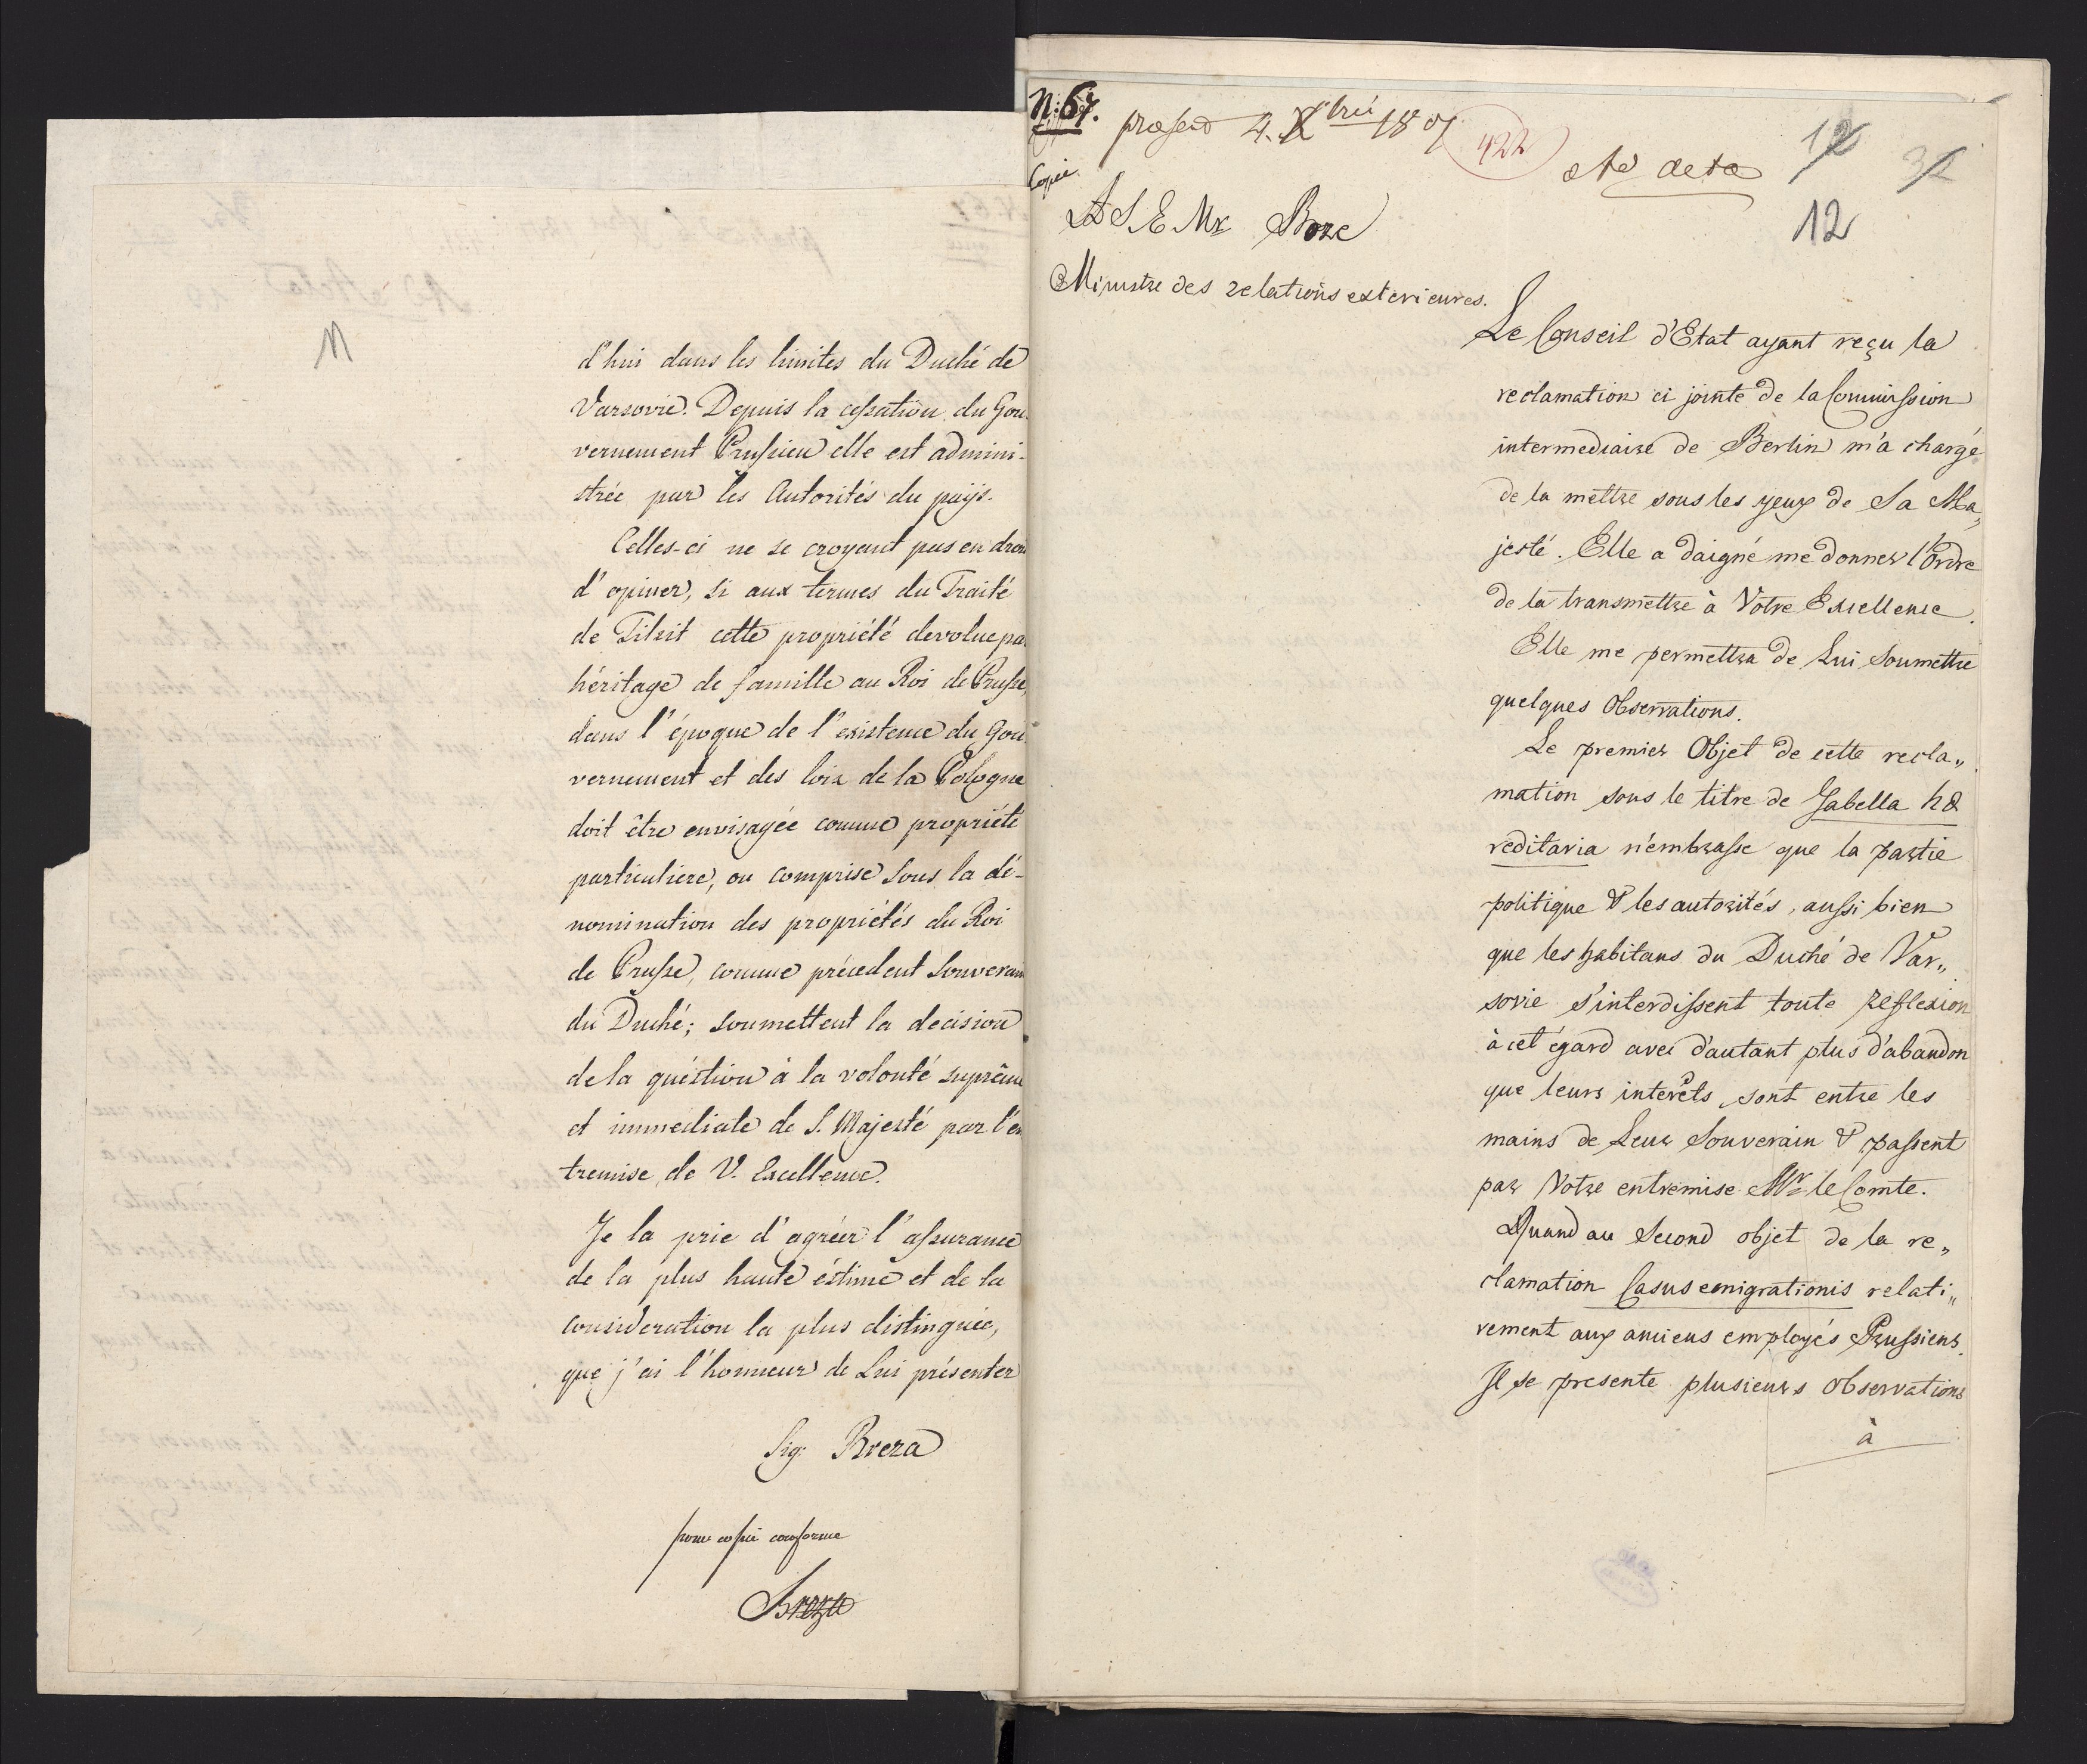 d'hui dans les limites du Duché de
Varsovie. Depuis la cessation du Gou-
vernement Prussien elle est admini-
strée par les Autorités du paÿs.
Celles-ci ne se croyent pas en droit
d'opiner, si aux termes du Traité
de Tilsit cette propriété devolue par
héritage de famille au Roi de Prusse,
dans l'époque de l'existence du Gou-
vernement et des loix de la Pologne
doit être envisagée comme propriété
particuliere, ou comprise sous la dé-
nomination des propriétés du Roi
de Prusse, comme précedent Souverain
du Duché; soumettent la decision
de la quéstion à la volonté suprême
et immediate de S. Majesté par l'en
tremise de V. Excellence.
Je la prie d'agréer l'assurance
de la plus haute éstime et de la
consideration la plus distinguée,
que j'ai l'honneur de Lui présenter
Sig: Breza
pour copie conforme
Breza
N: 67.
præsent 4. Xbris 1807
422
Ad acta
12
32
12
Copie.
A S E Mr Boze
Ministre des relations exterieures.
Le Conseil d'Etat ayant reçu la
reclamation ci jointe de la Commission
intermediaire de Berlin m'a chargé
de la mettre sous les yeux de Sa Ma„
jesté. Elle a daigné me donner l'Ordre
de la transmettre à Votre Excellence.
Elle me permettra de Lui soumettre
quelques Observations.
Le premier Objet de cette recla„
mation sous le titre de Gabella hæ
reditaria n'embrasse que la partie
politique & les autorités, aussi bien
que les habitans du Duché de Var„
sovie s'interdissent toute reflexion
à cet égard avec d'autant plus d'abandon
que leurs interêts sont entre les
mains de Leur Souverain & passent
par Votre entremise Mr le Comte.
Quand au Second objet de la re„
clamation Casus emigrationis relati„
vement aux anciens employés Prussiens.
Il se presente plusieurs Observations
à